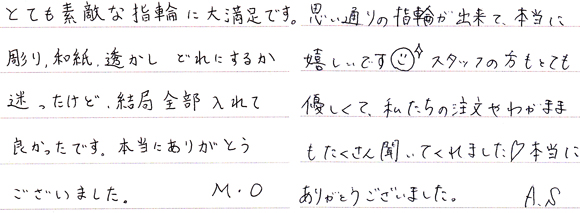 とても素敵な指輪に大満足です。
彫り、和紙、透かし どれにするか
迷ったけど、結局全部入れて
良かったです。本当にありがとう
ございました。 M・O
思い通りの指輪が出来て、本当に
嬉しいです☺✧ スタッフの方もとても
優しくて、私たちの注文やわがまま
もたくさん聞いてくれました♡本当に
ありがとうございました。 A.S